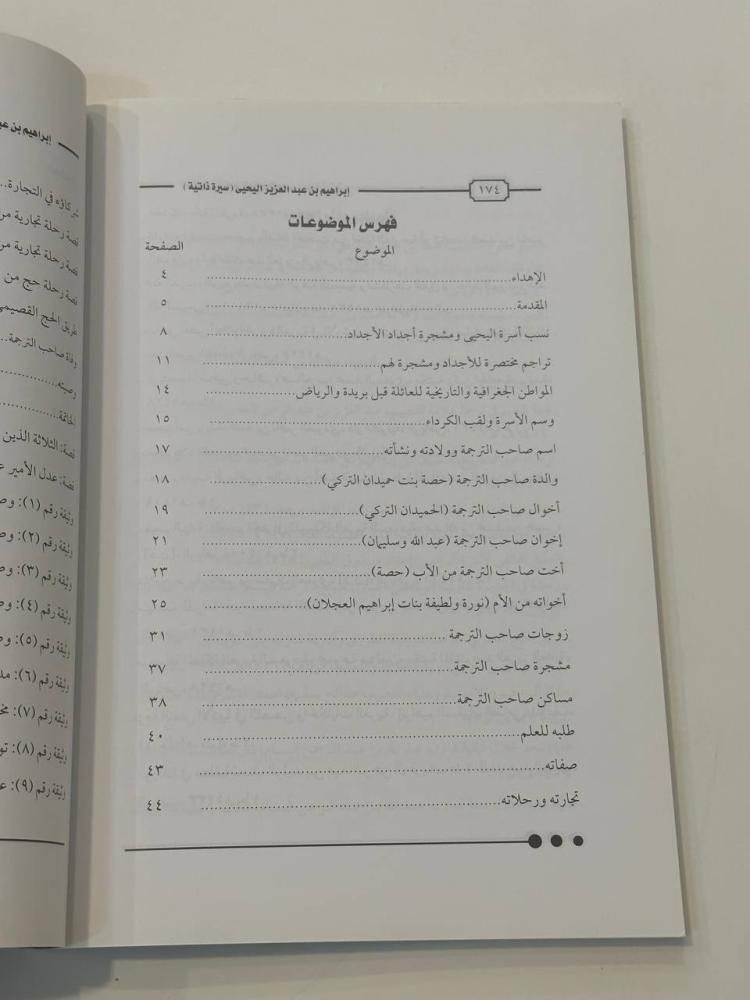 ١٧٤
إبراهيم بن عبد العزيز اليحيى (سيرة ذاتية)
فهرس الموضوعات
الموضوع الصفحة
الإهداء ٤
المقدمة ٥
نسب أسرة اليحيى ومشجرة أجداد الأجداد ٨
تراجم مختصرة للأجداد ومشجرة لهم ١١
المواطن الجغرافية والتاريخية للعائلة قبل بريدة والرياض ١٤
وسم الأسرة ولقب الكرداء ١٥
اسم صاحب الترجمة وولادته ونشأته ١٧
والدة صاحب الترجمة (حصة بنت حميدان التركي) ١٨
أخوال صاحب الترجمة (الحميدان التركي) ١٩
إخوان صاحب الترجمة (عبد الله وسليمان) ٢١
أخت صاحب الترجمة من الأب (حصة) ٢٣
أخواته من الأم (نورة ولطيفة بنات إبراهيم العجلان) ٢٥
زوجات صاحب الترجمة ٣١
مشجرة صاحب الترجمة ٣٧
مساكن صاحب الترجمة ٣٨
طلبه للعلم ٤٠
صفاته ٤٣
تجارته ورحلاته ٤٤
إبراهيم بن
شركاؤه في التجارة
قصة رحلة تجارية
قصة رحلة تجارية
قصة رحلة حج من
طريق الحج القصيمي
وفاة صاحب الترجمة
وصيته
الخاتمة
قصة: الثلاثة الذين
قصة: عدل الأمير
وثيقة رقم (١):
وثيقة رقم (٢):
وثيقة رقم (٣):
وثيقة رقم (٤):
وثيقة رقم (٥):
وثيقة رقم (٦):
وثيقة رقم (٧):
وثيقة رقم (٨):
وثيقة رقم (٩):